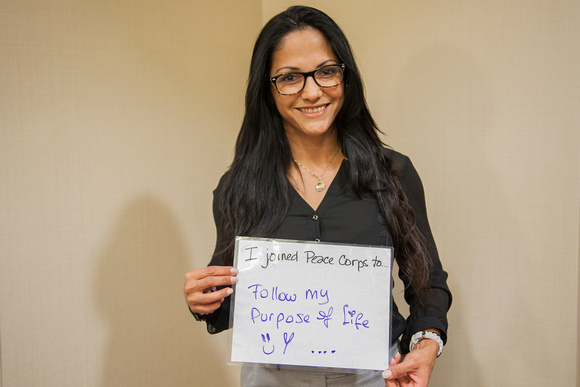 I joined Peace Corps to...
Follow my
Purpose of Life
....